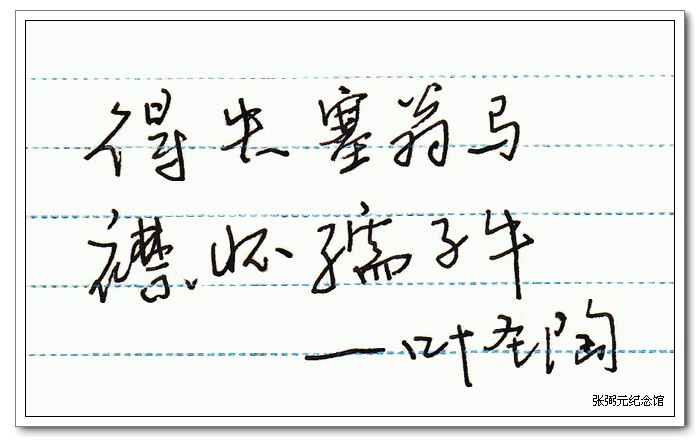 得失塞翁马
襟怀孺子牛
——叶圣陶
张弼元纪念馆